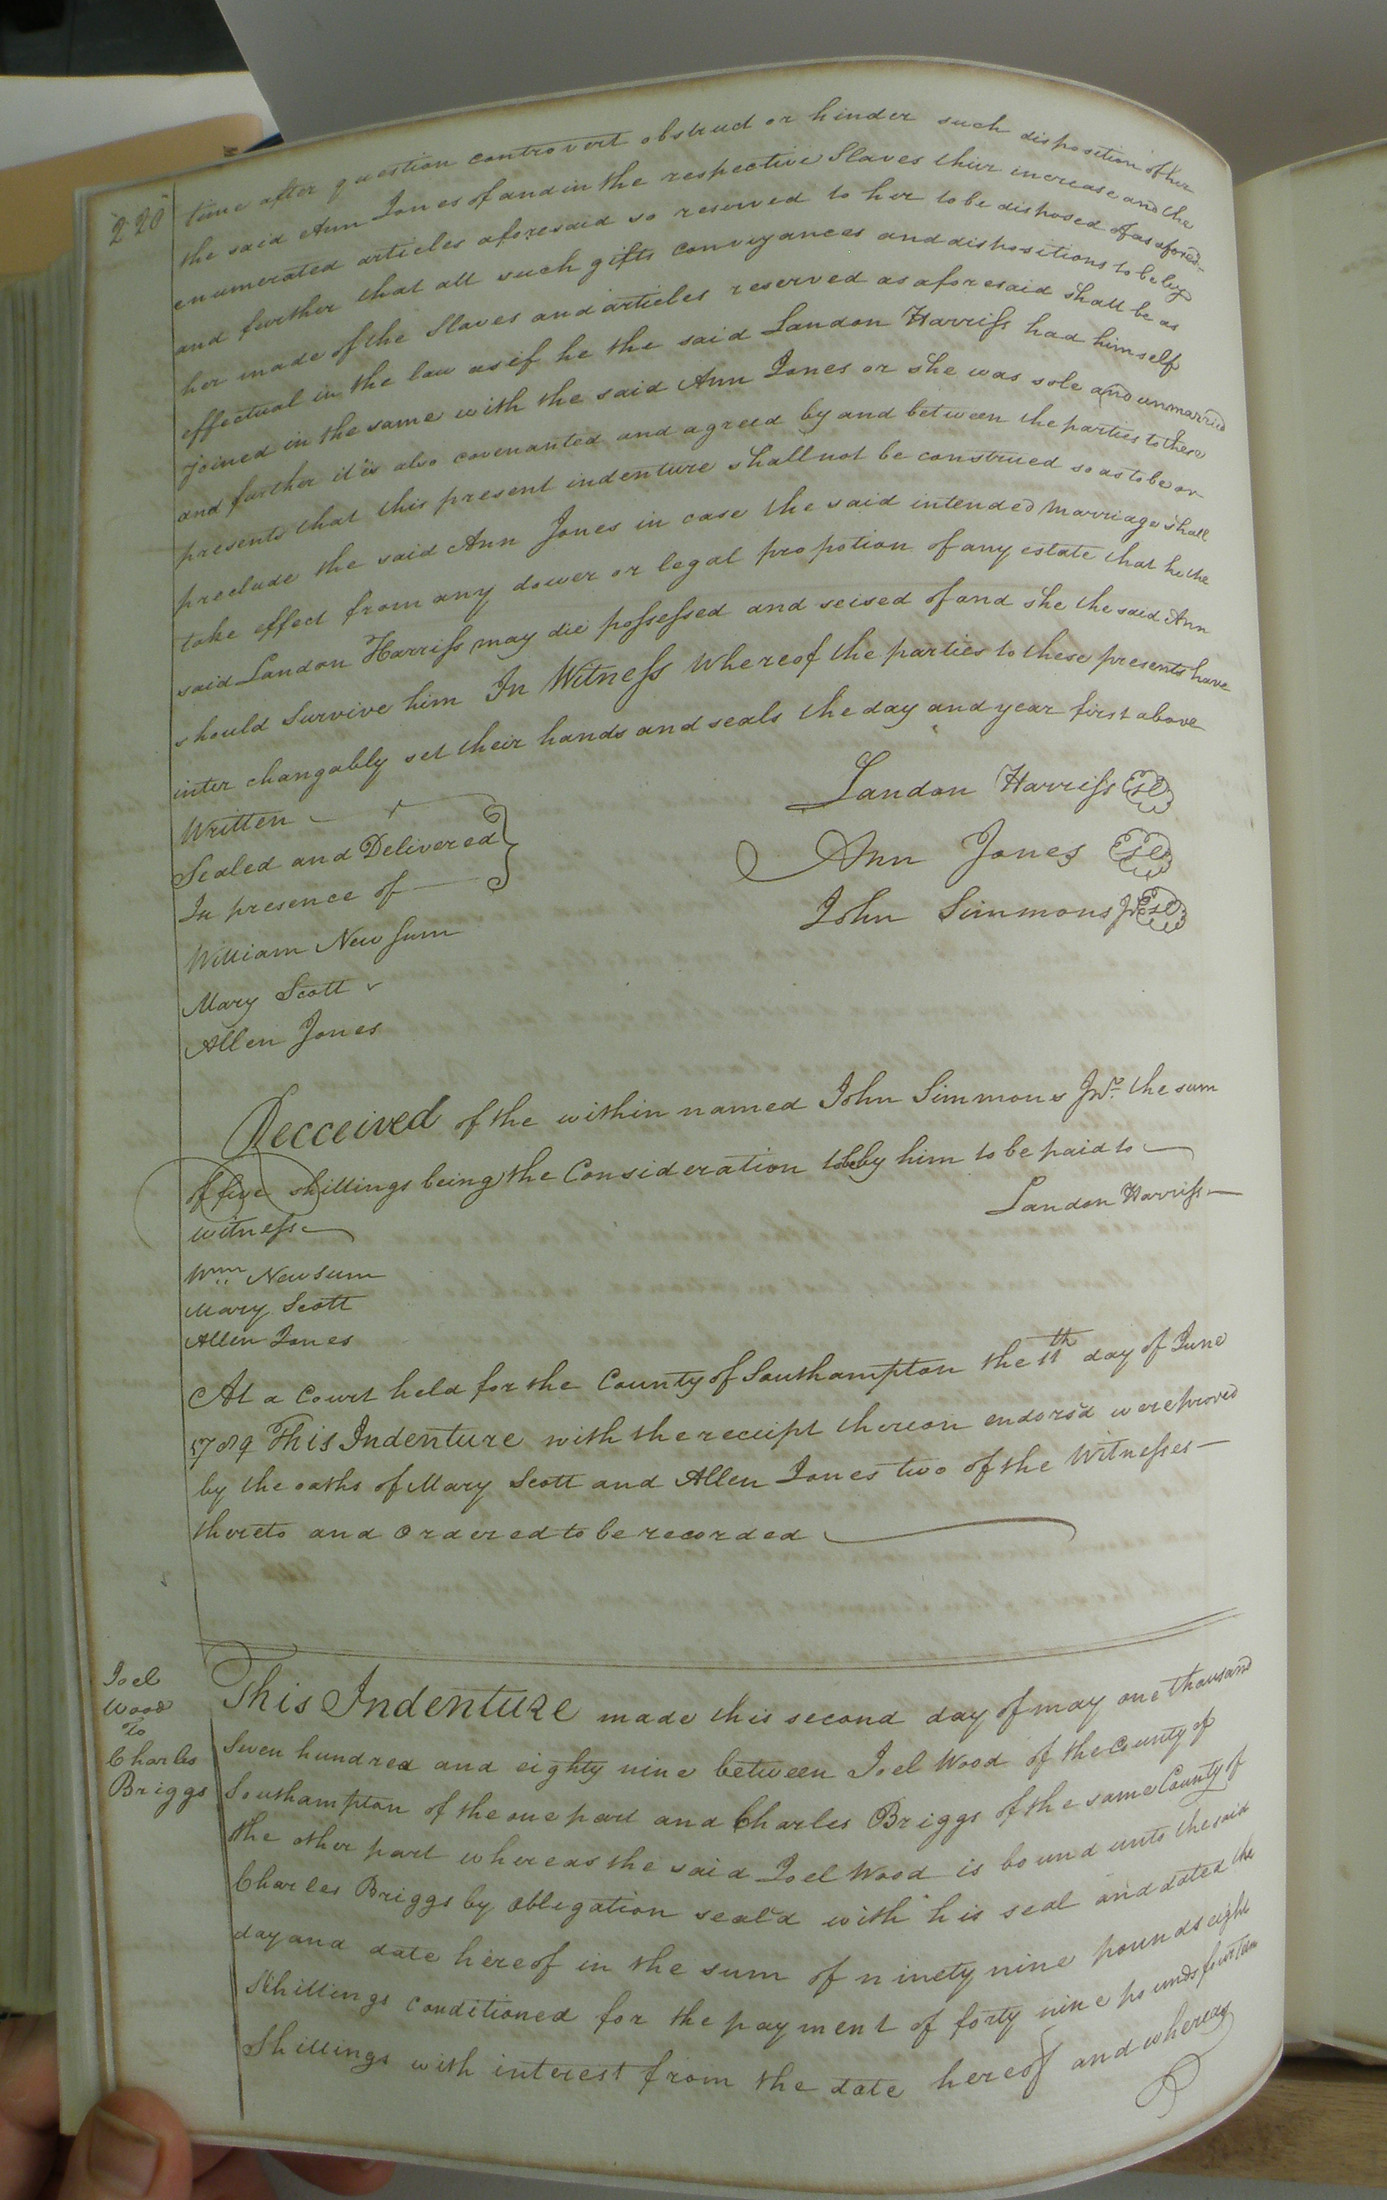 220
time after question controvert obstruct or hinder such disposition of her
the said Ann Jones of and in the respective Slaves their increase and the
enumerated articles aforesaid so reserved to her to be disposed of as afores.d
and further that all such gifts conveyances and dispositions to be by
her made of the Slaves and articles reserved as aforesaid shall be as
effectual in the law as if he the said Landon Harriss had himself
joined in the same with the said Ann Jones or she was sole and unmarried
and further it is also covenanted and agreed by and between the parties to these
presents that this present indenture shall not be construed so as to be or
preclude the said Ann Jones in case the said intended marriage shall
take effect from any dower or legal propotion of any estate that he the
said Landon Harriss may die possessed and seised of and she the said Ann
should Survive him In Witness whereof the parties to these presents have
inter changably set their hands and seals the day and year first above
Written
Landon Harriss Seal
Sealed and Delivered
Ann Jones Seal
In presence of
John Simmons Jr Seal
William Newsum
Mary Scott
Allen Jones
Recceived of the within named John Simmons Jnr. the sum
of five shillings being the Consideration by him to be paid to
Landon Harriss
witness
Wm Newsum
Mary Scott
Allen Jones
At a Court held for the County of Southampton the 11th day of June
1789 This Indenture with the receipt thereon endorsd were proved
by the oaths of Mary Scott and Allen Jones two of the Witnesses
thereto and ordered to be recorded
Joel
Wood
to
Charles
Briggs
This Indenture made this second day of may one thousand
Seven hundred and eighty nine between Joel Wood of the County of
Southampton of the one part and Charles Briggs of the same County of
the other part whereas the said Joel Wood is bound unto the said
Charles Briggs by obligation seald with his seal and dated the
day and date hereof in the sum of ninety nine pounds eight
Shillings conditioned for the payment of forty nine pounds fourteen
Shillings with interest from the date hereof and whereas